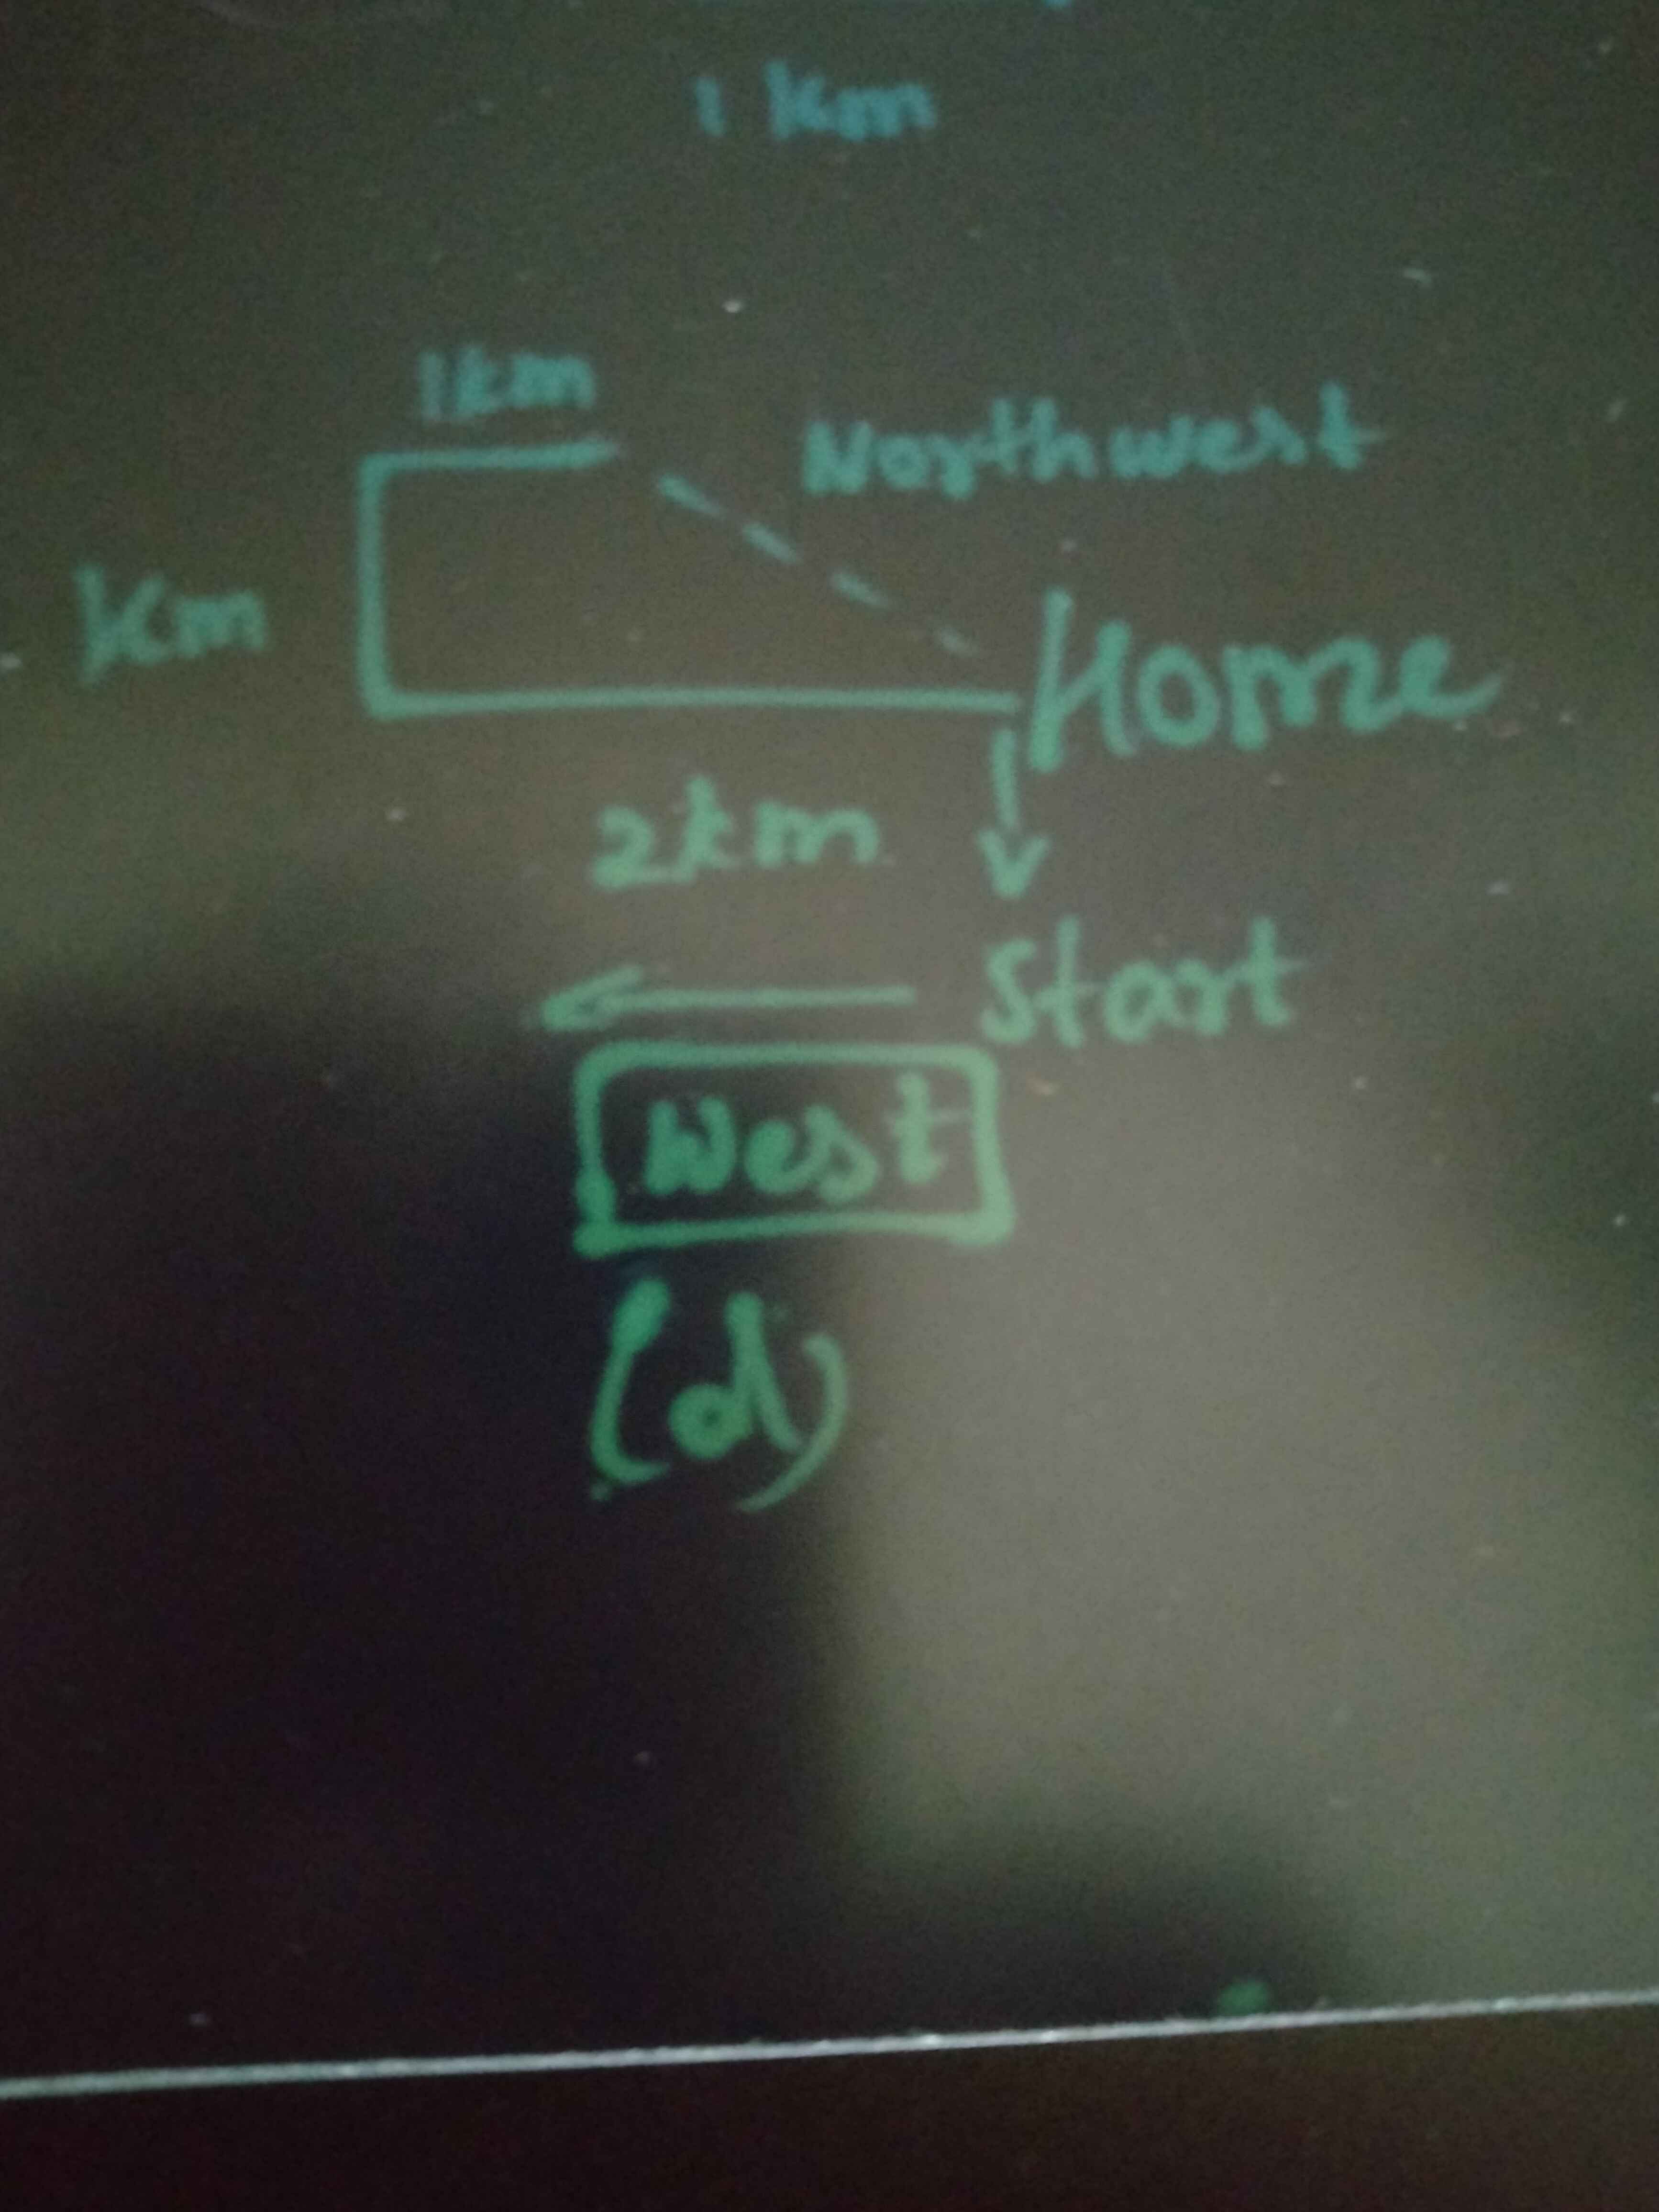 1 Km
1km
Northwest
Km
Home
2km
Start
West
(d)